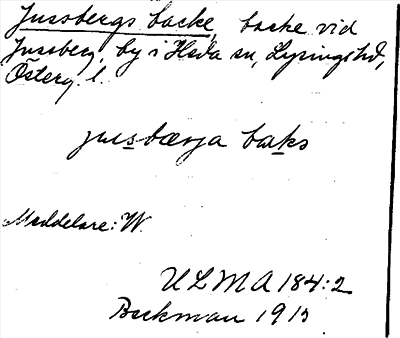 Jussbergs backe, backe vid
Jussberg, by i Heda sn, Lysings hd,
Österg. l.
jusbærja baks
Meddelare: W.
ULMA 184:2
Beckman 1915